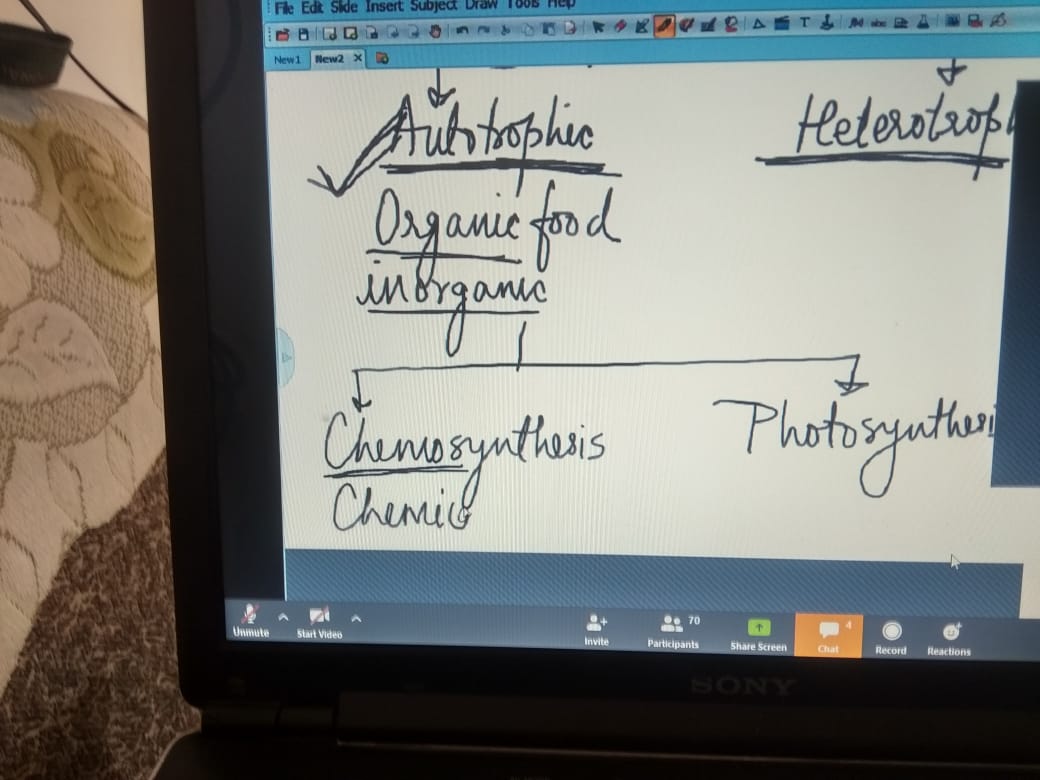 File Edit Slide Insert Subject Draw Tools Help
New1 New2
Autotrophic Heterotroph
Organic food
inorganic
Chemosynthesis Photosynthesi
Chemic
Unmute Start Video Invite Participants 70 Share Screen Chat 4 Record Reactions
SONY